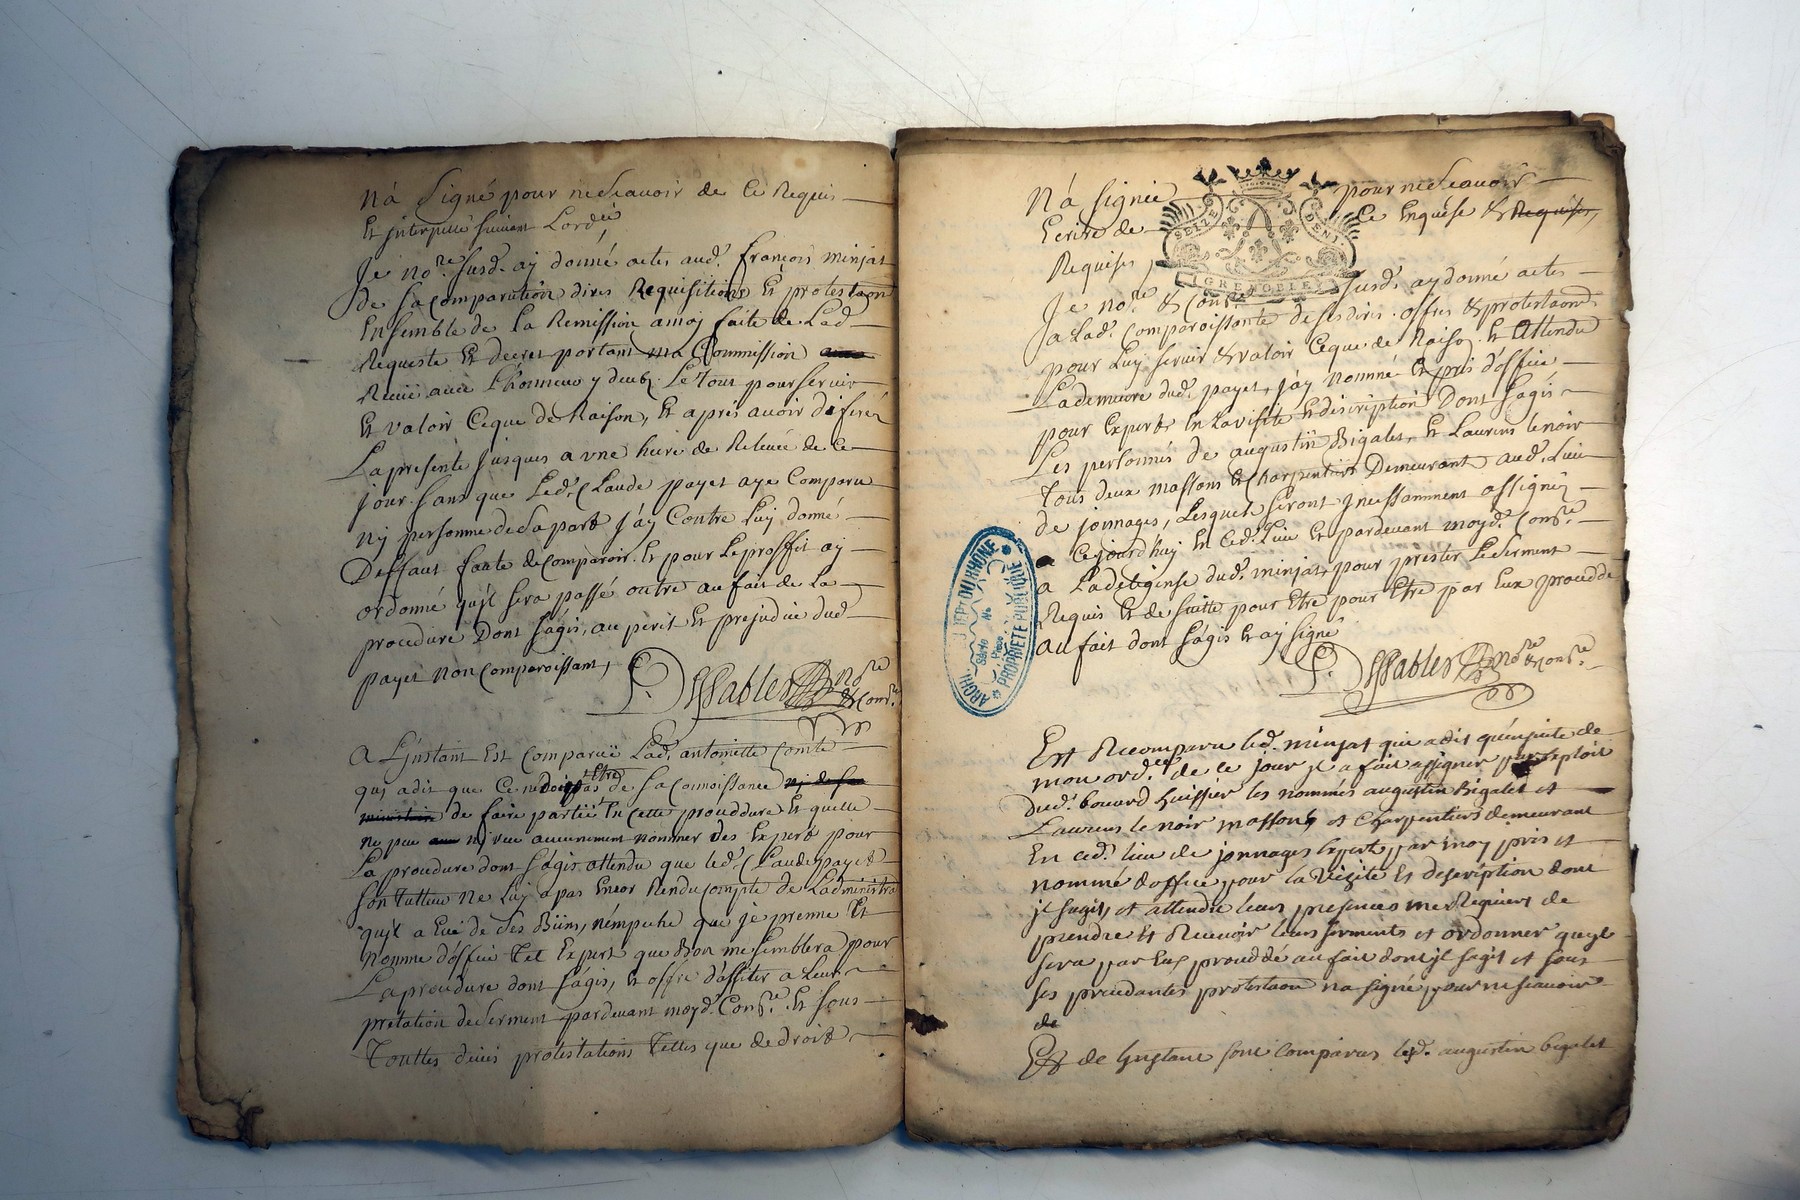 Na Signé pour ne scavoir de ce Requis
Et jnterpellé suivant Lord.ce
Je no.re susd. ay donné actes aud. françois minjat
de sa comparution dires Requisitions Et protestaon
Ensemble de La Remission a moy faite de Lad
Requeste Et decret portant ma Commission
Reçeüe avec L'honneur y deub. Le Tout pour servir
Et valoir Ceque de Raison, Et aprés avoir differé
La presente Jusques a vne heure de Relevée de Ce
jour sans que Led. Claude payet aye Comparu
Ny personne de sa part J'ay Contre Luy donné
Deffaut faute de comparoir. Et pour Le proffit ay
ordonné quyl sera passé outre au fait de La
procedure Dont s'agis, au peril Et prejudice dud
payet Non Comparoissant,
P. Dessablers no.re
& Com.re
A L'jnstant Est Comparüe Lad. antoinette Comte
quy a dit que Ce ne doit pas Etre de sa Connoissance ny de son
ministere de faire partie En cette procedure Et quelle
ne peu ny veu aucunement nommer des Experts pour
La procedure dont s'agis attendu que led. Claude payet
son Tutteur Ne Luy a pas Encor Rendu Compte de Ladministra
quyl a Eüe de ses Biens, n'empeche que je prenne Et
Nomme d'office Tel Expert que Bon me semblera pour
La procedure dont s'agis, Et offre d'assiter a Leur
pretation de serment pardevant moyd. Com.re Et sous
Touttes deües protestations Telles que de droit
Na signée pour ne scavoir
Ecrire de ce Enquise & Requise,
Requise,
SEIZE DENI.
GRENOBLE
Je no.re & Com.re susd. ay donné actes
a Lad. Comparoissante de ses dires offres & protestaons
pour Luy servir & valoir Ceque de Raison. Et Attendu
La demeure dud. payet, j'ay Nommé Et pris d'office
pour Experts En La visite Et description Dont s'agis
Les personnes de augustin Bigalet, Et Laurens Lenoir
Tous deux massons & Charpentiers Demeurant aud. Lieu
de jonnages, Lesquels seront jncessamment assignez
Cejourd'huy En Ced. Lieu Et pardevant moyd. Com.re
a La deligense dud. minjat, pour prester Le serment
Requis Et de suitte pour Etre pour Etre par Eux procedde
au fait dont s'agis Et ay signé
P. Dessablers no.re & Com.re
ARCHI. DEPT DU RHONE
Série
No
Pièce
PROPRIÉTÉ PUBLIQUE
Est Recomparu led. minjat qui a dit qu'ensuite de
mon ord.ce de ce jour jl a fait assigner par exploit
dud. bouvard huissier les nommes augustin Bigalet et
Laurens le noir massons et Charpentiers demeurant
En ced. lieu de jonnages Experts par moy pris et
nommé doffice pour la Vizite Et description dont
jl sagis, et attendu leurs presences me Requiert de
prendre Et Recevoir leurs serments et ordonner quyl
sera par Eux proceddé au fait dont jl sagit et sous
ses precedantes protestaon na signé pour ne scavoir
de
Et de Linstant sont Comparus lesd. augustin bigalet